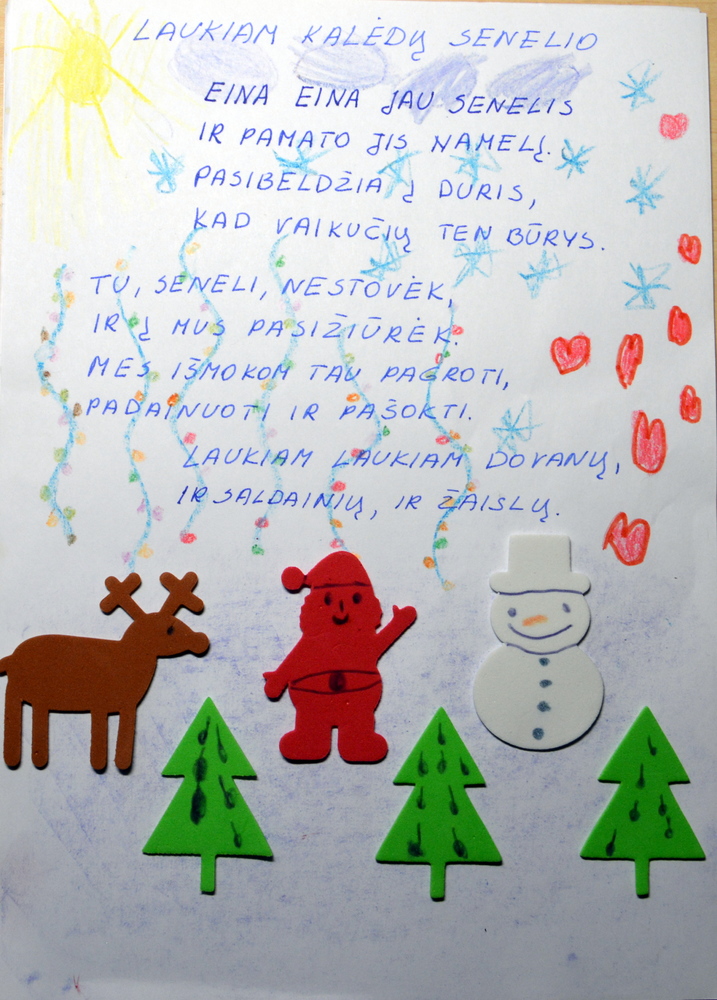 LAUKIAM KALĖDŲ SENELIO
EINA EINA JAU SENELIS
IR PAMATO JIS NAMELĮ.
PASIBELDŽIA Į DURIS,
KAD VAIKUČIŲ TEN BŪRYS.
TU, SENELI, NESTOVĖK,
IR Į MUS PASIŽIŪRĖK.
MES IŠMOKOM TAU PAGROTI,
PADAINUOTI IR PAŠOKTI.
LAUKIAM LAUKIAM DOVANŲ,
IR SALDAINIŲ, IR ŽAISLŲ.